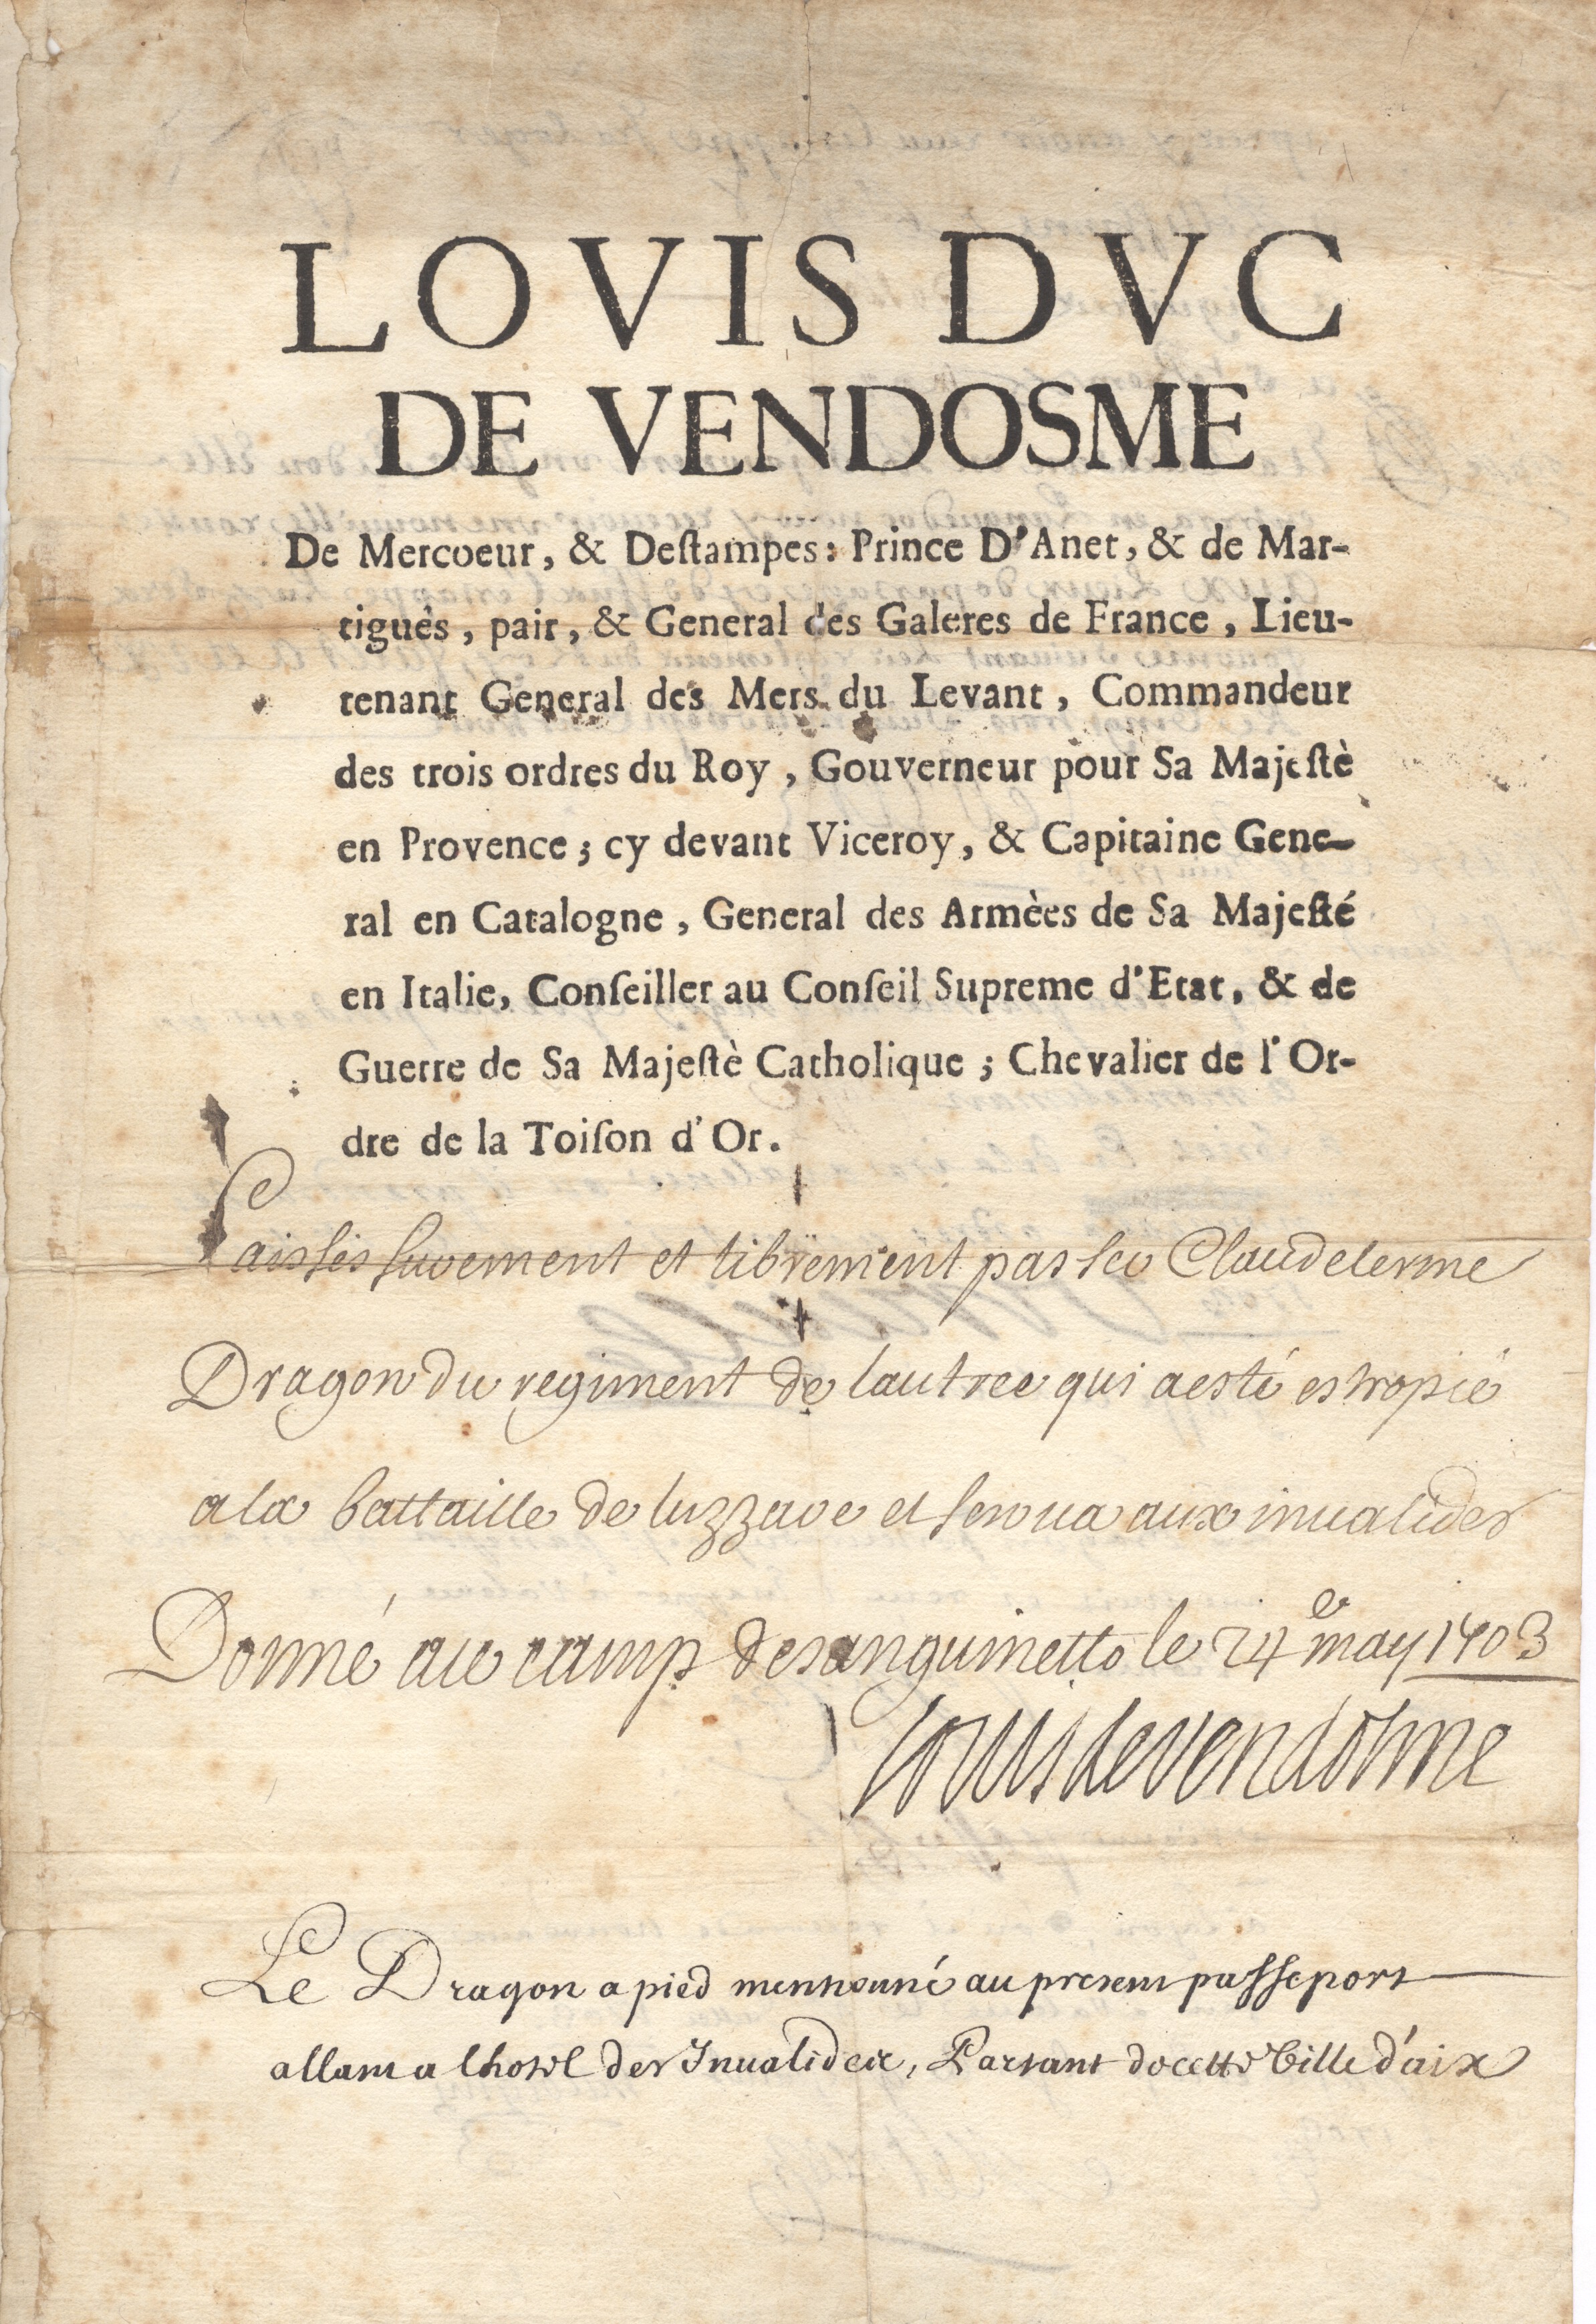 LOVIS DVC
DE VENDOSME
De Mercoeur, & Deſtampes: Prince D'Anet, & de Mar-
tiguès, pair, & General des Galeres de France, Lieu-
tenant General des Mers du Levant, Commandeur
des trois ordres du Roy, Gouverneur pour Sa Majeſtè
en Provence; cy devant Viceroy, & Capitaine Gene-
ral en Catalogne, General des Armèes de Sa Majeſté
en Italie, Conſeiller au Conſeil Supreme d'Etat, & de
Guerre de Sa Majeſtè Catholique; Chevalier de l'Or-
dre de la Toiſon d'Or.
Laisses surement et librement passer Claude lerme
Dragon du regiment de lautrec qui a esté estropié
a la battaille de luzzare et sen va aux inualides
Donné au camp de sanguinetto le 24e may 1703
Louis de vendosme
Le Dragon a pied mentionné au present passeport
allant a lhotel des Inualides, Partant de cette Ville d'aix